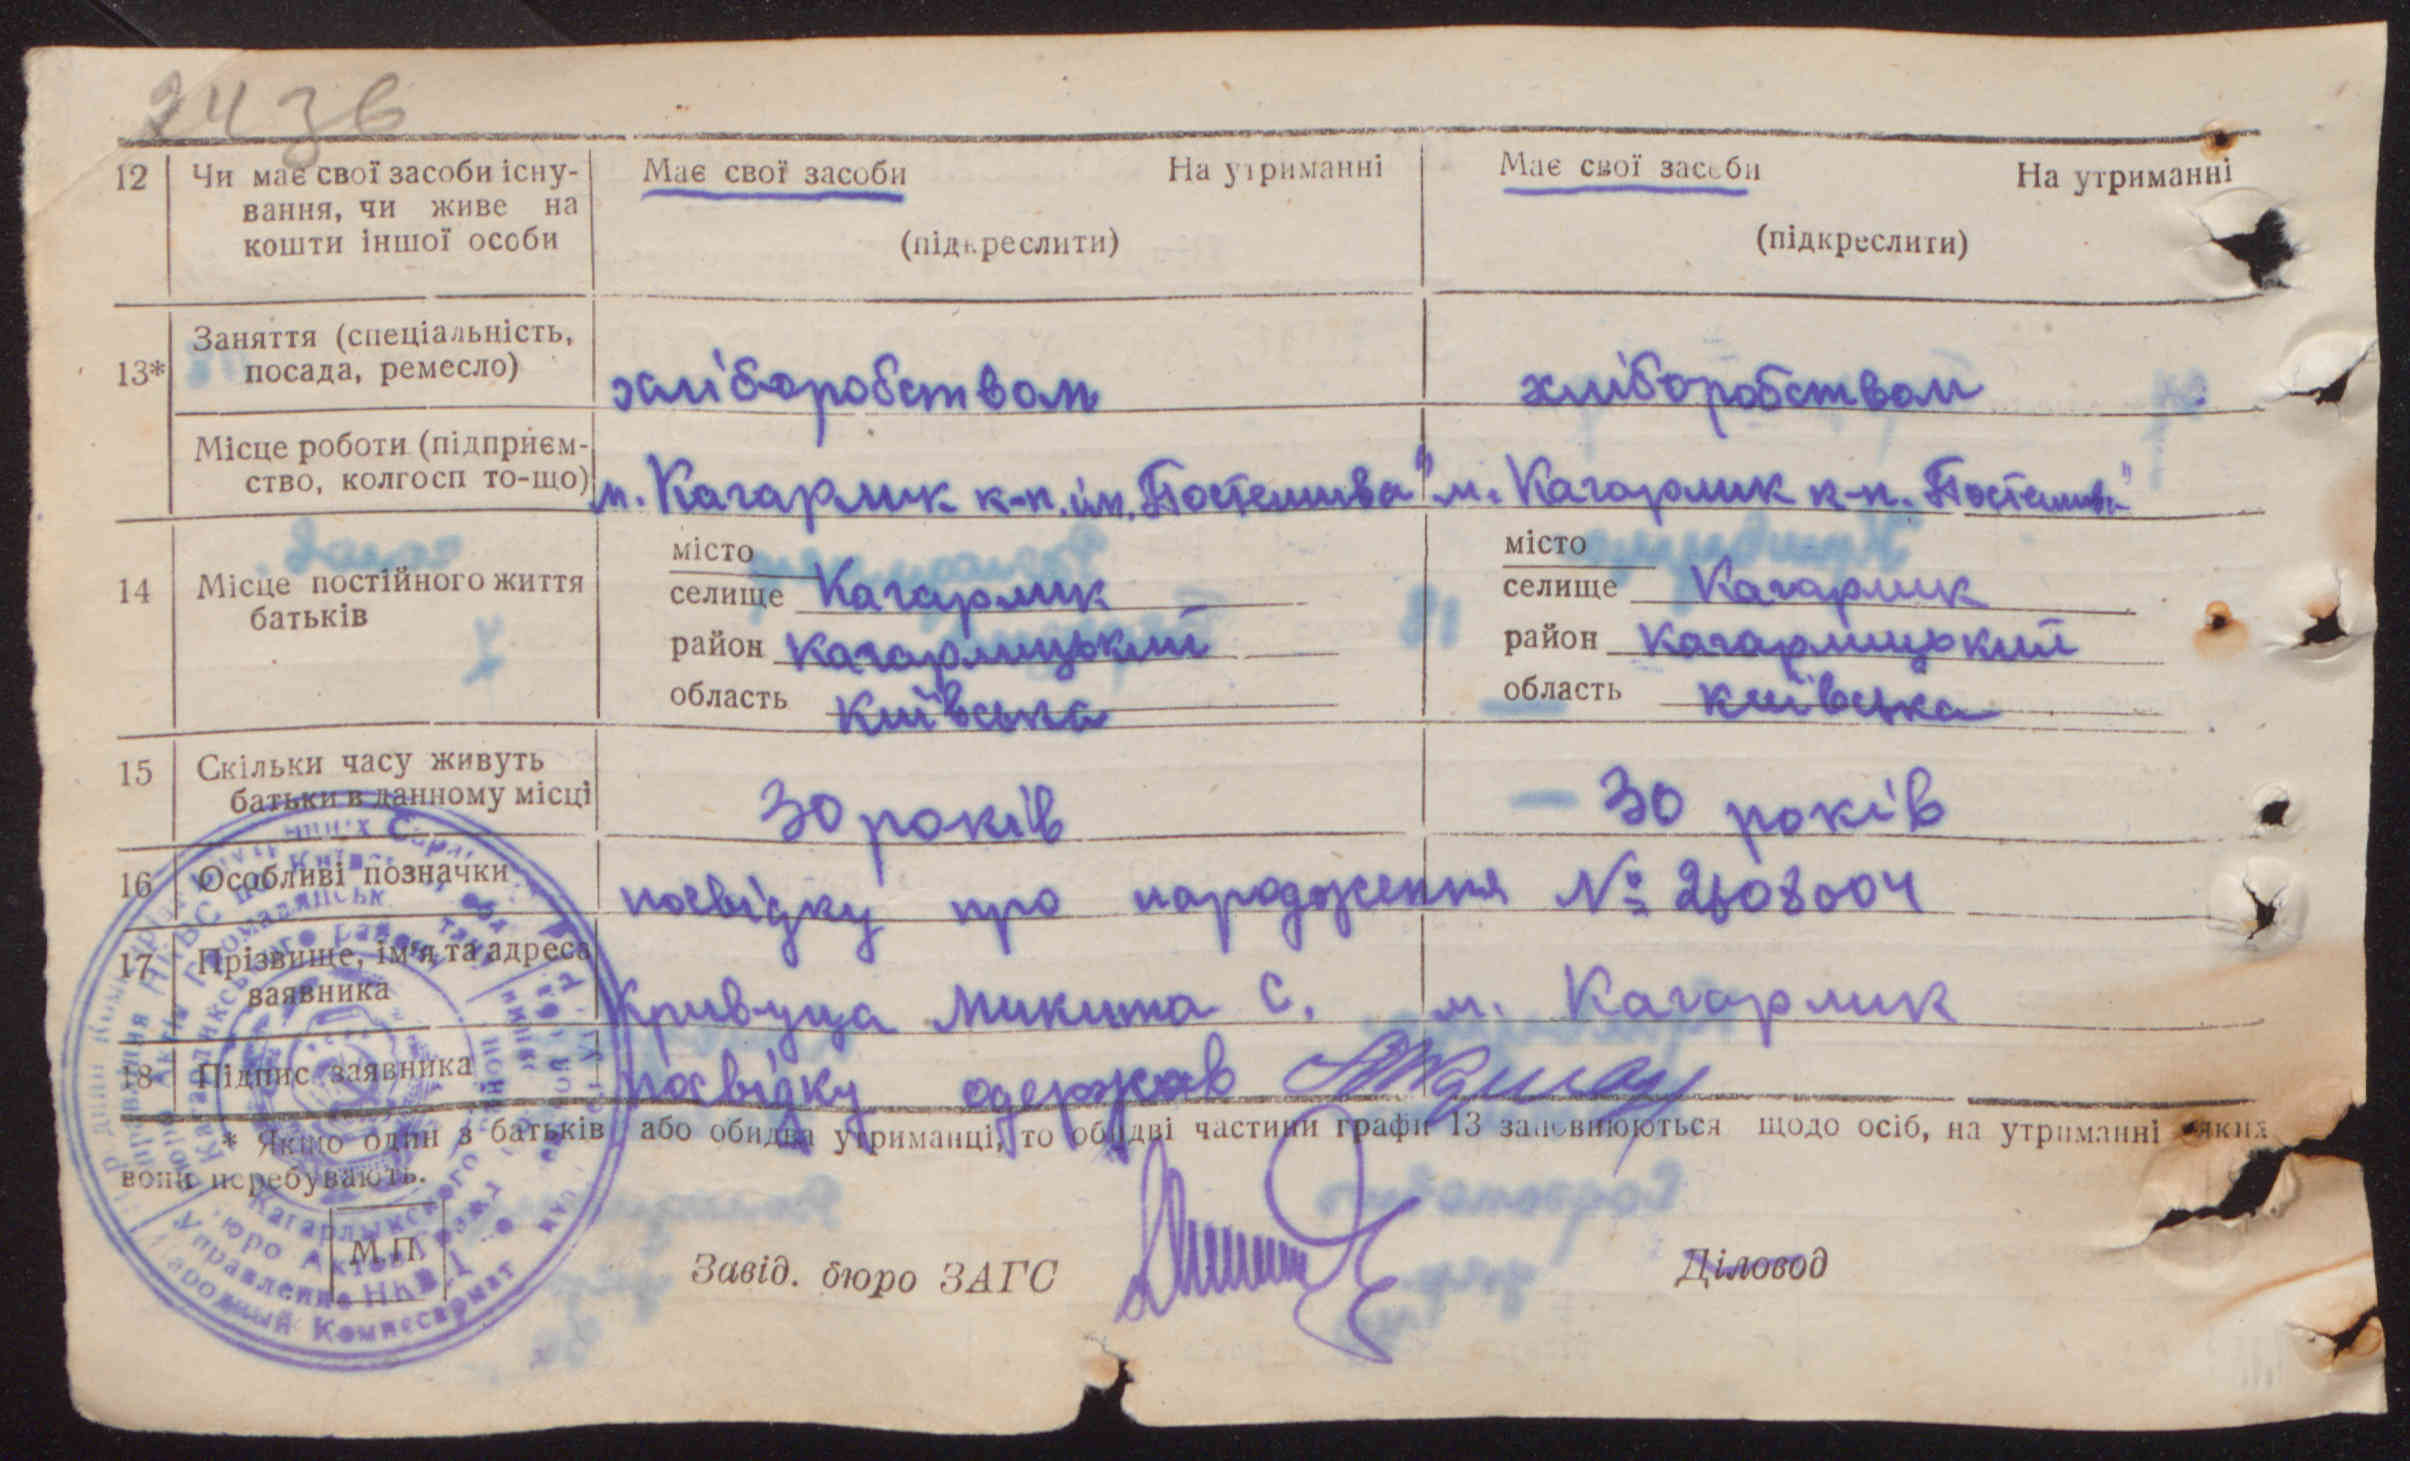 2436
12 Чи має свої засоби існу- Має свої засоби На утриманні Має свої засоби На утриманні
вання, чи живе на
кошти іншої особи (підкреслити) (підкреслити)
Заняття (спеціальність,
13* посада, ремесло) хліборобством хліборобством
Місце роботи (підприєм-
ство, колгосп то-що) м. Кагарлик к-п. ім. Постишева" м. Кагарлик к-п. Постишева"
місто місто
14 Місце постійного життя селище Кагарлик селище Кагарлик
батьків район Кагарлицький район Кагарлицький
область Київська область Київська
15 Скільки часу живуть
батьки в данному місці 30 років 30 років
16 Особливі позначки посвідку про народження № 2808004
17 Прізвище, ім'я та адреса
заявника Кривуца Микита С. м. Кагарлик
18 Підпис заявника посвідку одержав
* Якщо один з батьків або обидва утриманці, то обидві частини графи 13 заповнюються щодо осіб, на утриманні яких
вони перебувають.
М.П.
Завід. бюро ЗАГС Діловод
Кагарлыкского
Бюро Актов Гражд
Управление НКВД
Народный Комиссариат